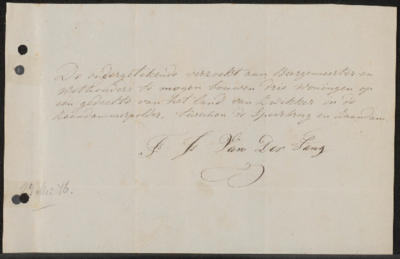 De ondergetekende verzoekt aan Burgemeester en
Wethouders te mogen bouwen drie Woningen op
een gedeelte van het land van Zwikker in de
tusschen de en Zaandam.
F J Van Der Lang
76.